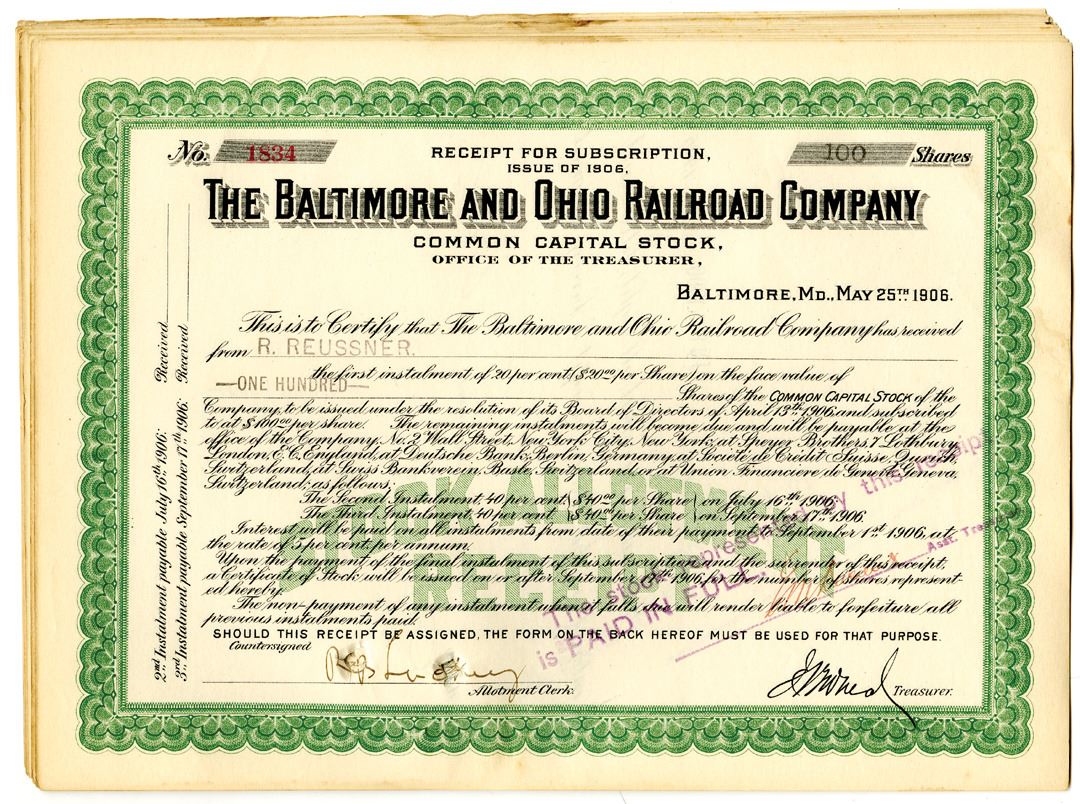 No. 1834
RECEIPT FOR SUBSCRIPTION,
100 Shares
ISSUE OF 1906,
THE BALTIMORE AND OHIO RAILROAD COMPANY
COMMON CAPITAL STOCK,
OFFICE OF THE TREASURER,
BALTIMORE, MD., MAY 25TH 1906.
This is to Certify that The Baltimore and Ohio Railroad Company has received
from R. REUSSNER.
the first instalment of 20 per cent ($20.00 per Share) on the face value of
—ONE HUNDRED—
Shares of the COMMON CAPITAL STOCK of the
Company, to be issued under the resolution of its Board of Directors of April 13th 1906, and subscribed
to at $100.00 per share. The remaining instalments will become due and will be payable at the
office of the Company, No. 2 Wall Street, New York City, New York, at Speyer Brothers, 7 Lothbury,
London, E.C. England, at Deutsche Bank, Berlin, Germany, at Société de Crédit Suisse, Zurich,
Switzerland, at Swiss Bankverein, Basle, Switzerland, or at Union Financière de Genève, Geneva,
Switzerland, as follows;
The Second Instalment, 40 per cent ($40.00 per Share) on July 16th 1906.
The Third Instalment, 40 per cent ($40.00 per Share) on September 17th 1906.
Interest will be paid on all instalments from date of their payment to September 1st 1906, at
the rate of 5 per cent. per annum.
Upon the payment of the final instalment of this subscription and the surrender of this receipt,
a Certificate of Stock will be issued on or after September 1906, for the number of shares represent-
ed hereby.
The non-payment of any instalment when it falls due will render liable to forfeiture all
previous instalments paid.
SHOULD THIS RECEIPT BE ASSIGNED, THE FORM ON THE BACK HEREOF MUST BE USED FOR THAT PURPOSE.
Countersigned
Allotment Clerk.
Treasurer.
2nd Instalment payable July 16th 1906: Received
3rd Instalment payable September 17th 1906: Received
STOCK ALLOTMENT
RECEIPT
The stock represented by this receipt
is PAID IN FULL.
Asst. Treasurer